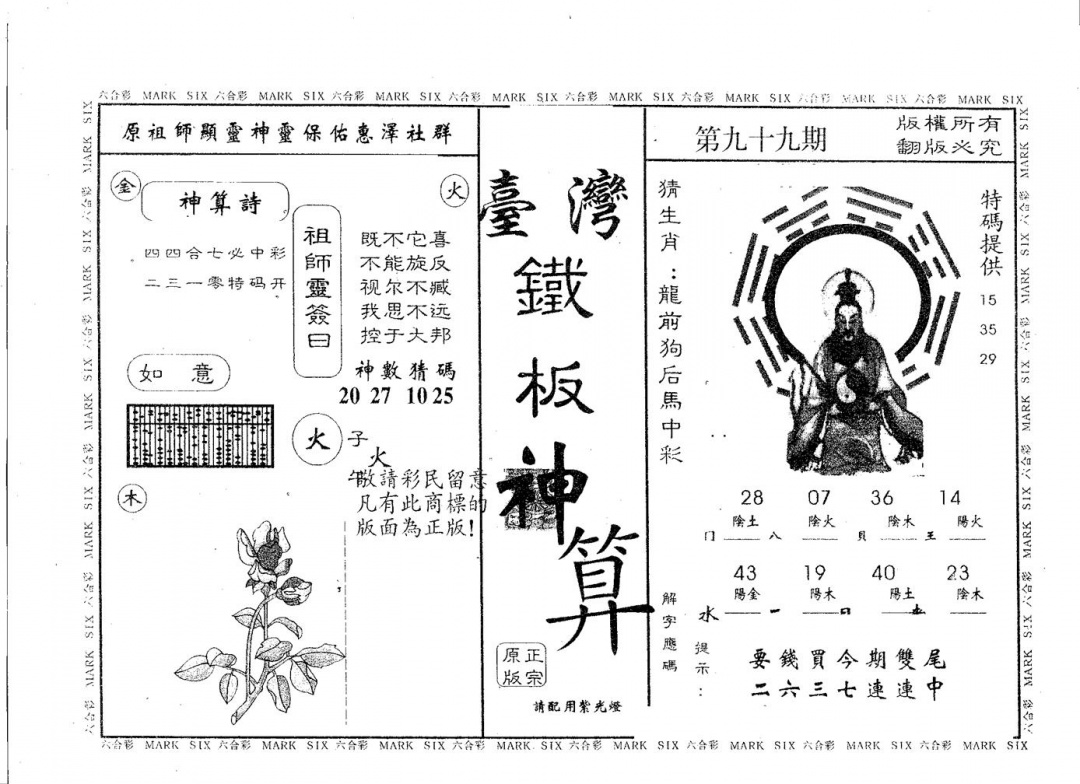 六合彩 MARK SIX 六合彩 MARK SIX 六合彩 MARK SIX 六合彩 MARK SIX 六合彩 MARK SIX 六合彩 MARK SIX 六合彩 MARK SIX 六合彩 MARK SIX
原祖師顯靈神靈保佑惠澤社群
金
神算詩
火
四四合七必中彩
二三一零特码开
祖師靈簽曰
既不它喜
不能旋反
视尔不臧
我思不远
控于大邦
神數猜碼
20 27 10 25
如意
火
子
火
午
敬請彩民留意
凡有此商標的
版面為正版!
木
臺灣
鐵
板
神
算
正宗
原版
請配用紫光燈
第九十九期
版權所有
翻版必究
猜生肖：龍前狗后馬中彩
特碼提供
15
35
29
28 07 36 14
陰土 陰火 陰木 陽火
门 八 貝 王
43 19 40 23
陽金 陽木 陽土 陰木
水 一 口
解字應碼
提示：
要錢買今期雙尾
二六三七連連中
六合彩 MARK SIX 六合彩 MARK SIX 六合彩 MARK SIX 六合彩 MARK SIX 六合彩 MARK SIX 六合彩 MARK SIX 六合彩 MARK SIX 六合彩 MARK SIX